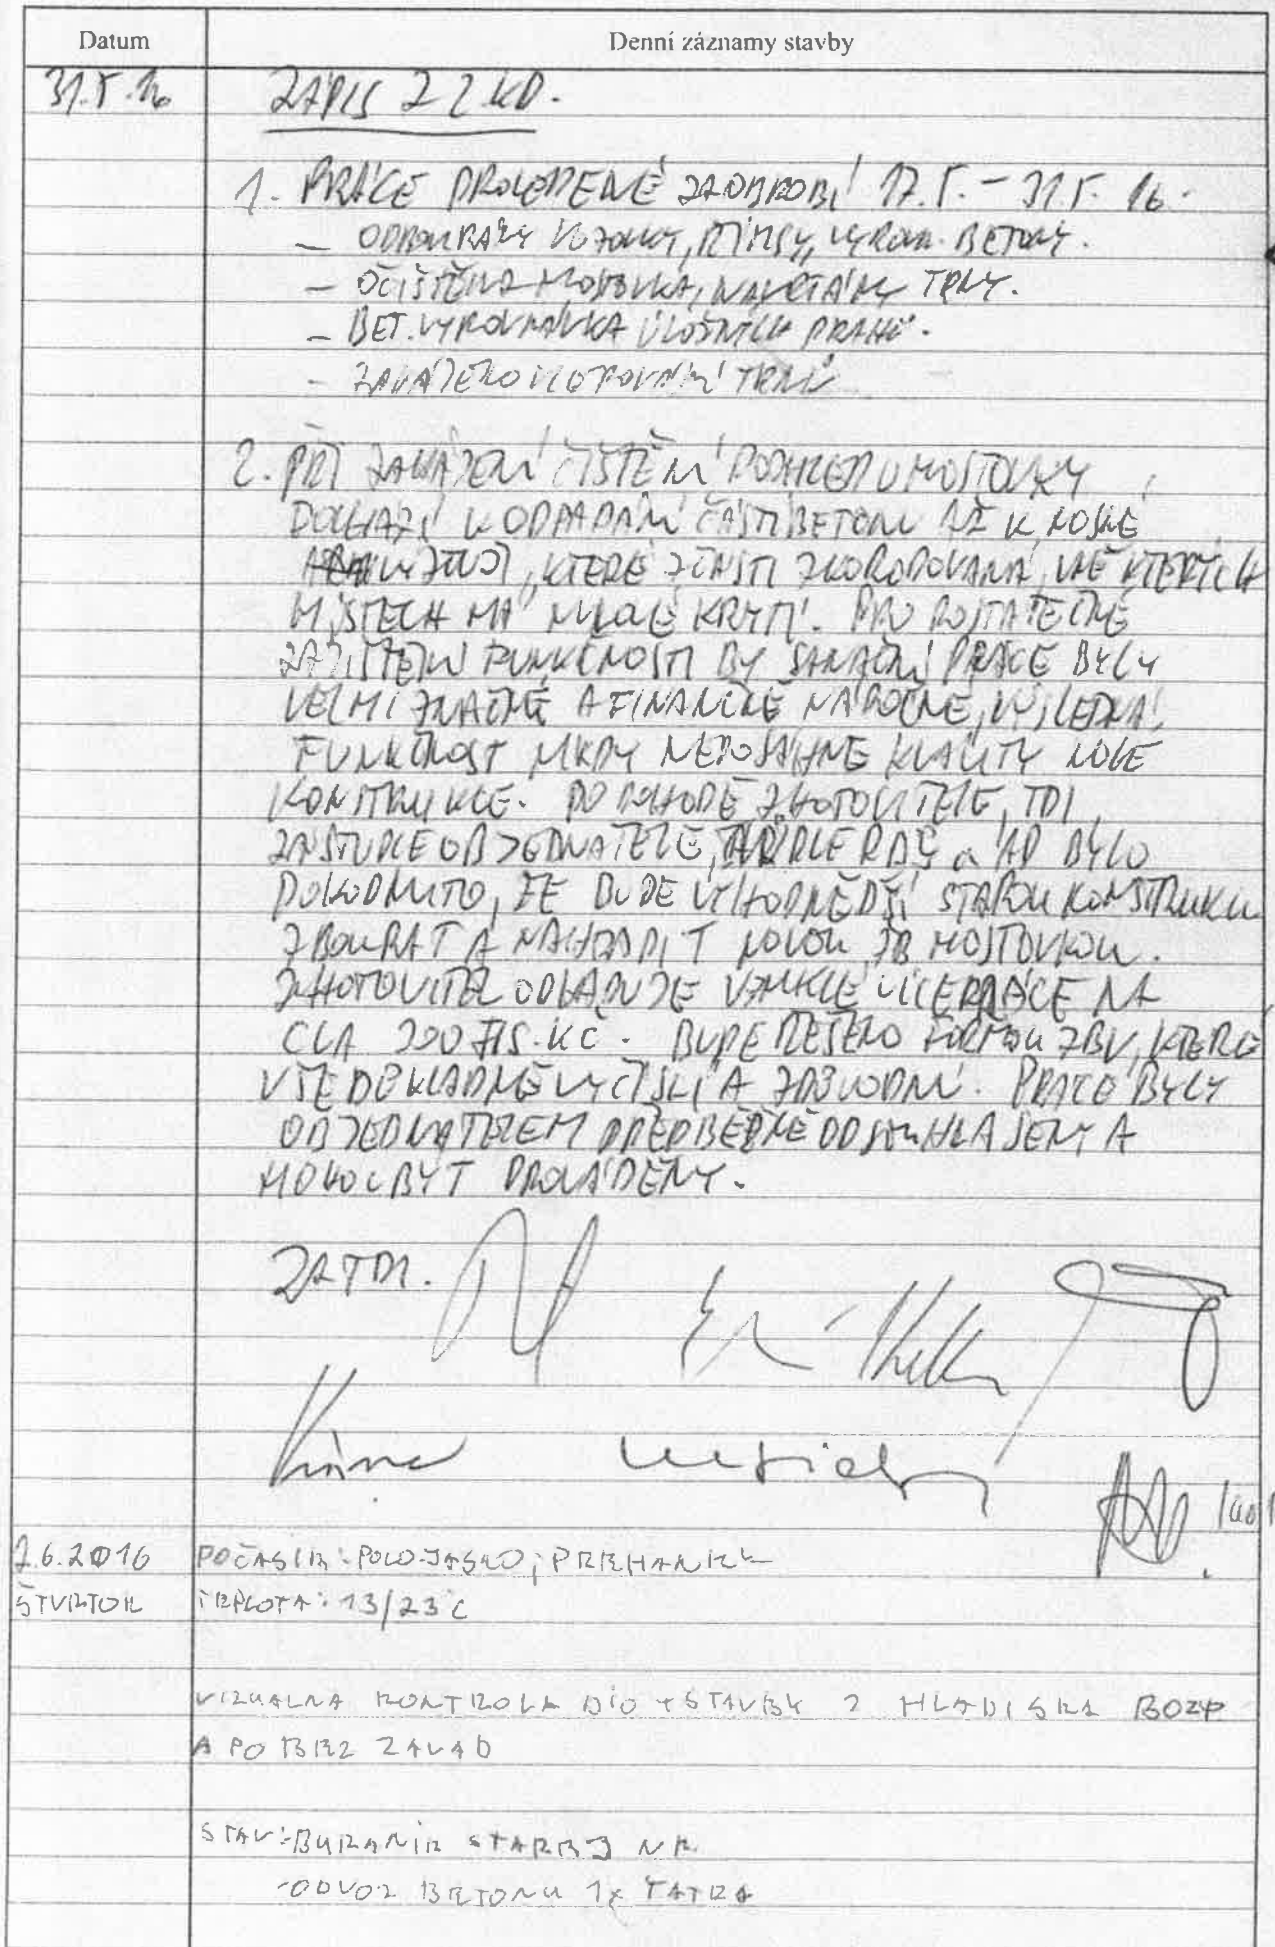 Datum Denní záznamy stavby
31.5.16 ZÁPIS Z 2.KD.
1. PRÁCE PROVEDENÉ ZA OBDOBÍ 17.5. - 31.5. 16.
- ODBOURÁNY VOZOVKY, ŘÍMSY, VYROVN. BETONY.
- OČIŠTĚNA MOSTOVKA, NAVRTÁNY TRNY.
- BET. VYROVNÁVKA ÚLOŽNÝCH PRAHŮ.
- ZAHÁJENO VLEPOVÁNÍ TRNŮ
2. PŘI ZAHÁJENÍ ČIŠTĚNÍ PODHLEDU MOSTOVKY
DOCHÁZÍ K ODPADÁNÍ ČÁSTI BETONU AŽ K NOSNÉ
VÝZTUŽI, KTERÁ JE ZKORODOVANÁ, V NĚKTERÝCH
MÍSTECH MÁ NULOVÉ KRYTÍ. PRO DOSTATEČNÉ
ZAJIŠTĚNÍ FUNKČNOSTI BY SANAČNÍ PRÁCE BYLY
VELMI ZNAČNÉ A FINANČNĚ NÁROČNÉ, VÝSLEDNÁ
FUNKČNOST NIKDY NEDOSÁHNE KVALITY NOVÉ
KONSTRUKCE. PO DOHODĚ ZHOTOVITELE, TDI,
ZÁSTUPCE OBJEDNATELE, A AD BYLO
DOHODNUTO, ŽE BUDE VÝHODNĚJŠÍ STAROU KONSTRUKCI
ZBOURAT A NAHRADIT NOVOU ŽB MOSTOVKOU.
ZHOTOVITEL ODHADUJE VZNIKLÉ VÍCEPRÁCE NA
CCA TIS. KČ. BUDE ŘEŠENO FORMOU ZBV, KTERÉ
VŠE DŮKLADNĚ VYČÍSLÍ A ZDŮVODNÍ. PRÁCE BYLY
OBJEDNATELEM PŘEDBĚŽNĚ ODSOUHLASENY A
MOHOU BÝT PROVÁDĚNY.
ZA TDI.
2.6.2016 POČASIE: POLOJASNO, PREHANKY
ŠTVRTOK TEPLOTA: 13/23°C
VIZUALNA KONTROLA DIO + STAVBY Z HLADISKA BOZP
A PO BEZ ZAVAD
STAV: BURANIE STAREJ NK
- ODVOZ BETONU 1x TATRA